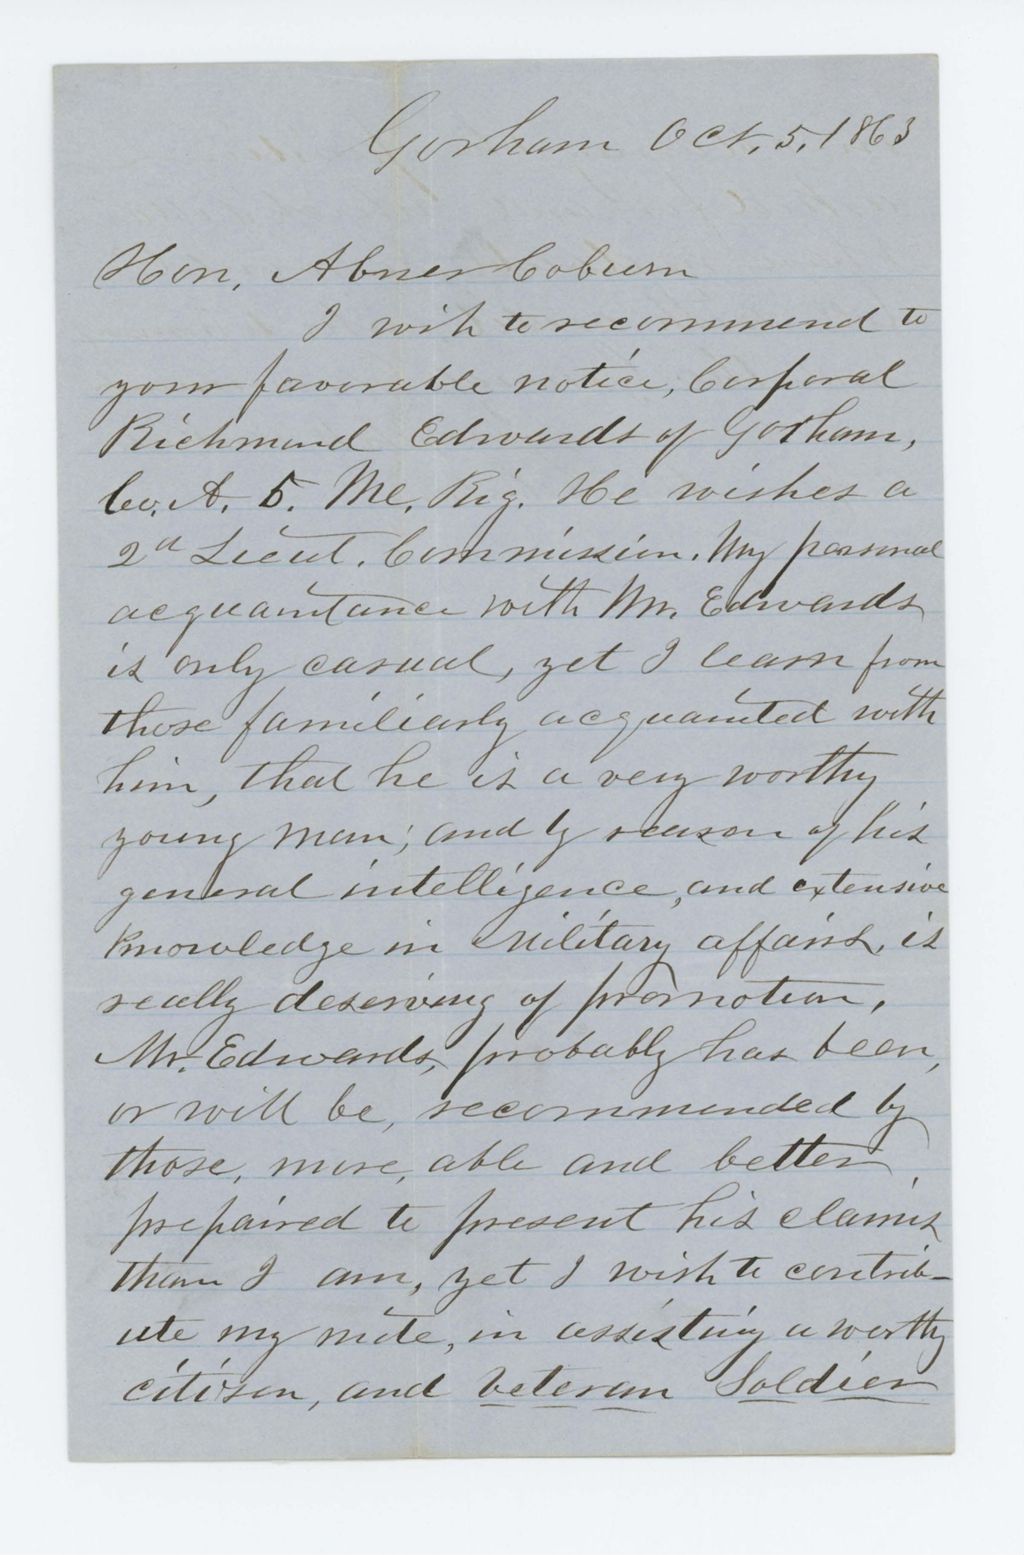 Gorham Oct. 5, 1863
Hon. Abner Coburn
I wish to recommend to
your favorable notice, Corporal
Richmond Edwards of Gorham,
Co. A. 5. Me. Rig. He wishes a
2d Lieut. Commission. My personal
acquaintance with Mr. Edwards
is only casual, yet I learn from
those familiarly acquainted with
him, that he is a very worthy
young man; and by reason of his
general intelligence, and extensive
knowledge in military affairs, is
really deserving of promotion.
Mr. Edwards, probably has been,
or will be, recommended by
those, more, able and better
prepaired to present his claims
than I am, yet I wish to contrib-
ute my mite, in assisting a worthy
citizen, and veteran Soldier